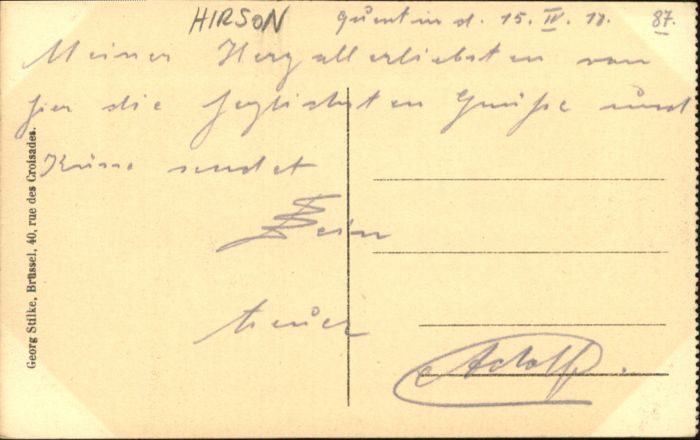 HIRSON
Quentin d. 15. IV. 18. 87.
Meiner Herzallerliebsten von
hier die herzlichsten Grüße und
Küsse sendet
Dein
treuer
Adolf.
Georg Stilke, Brüssel, 40, rue des Croisades.